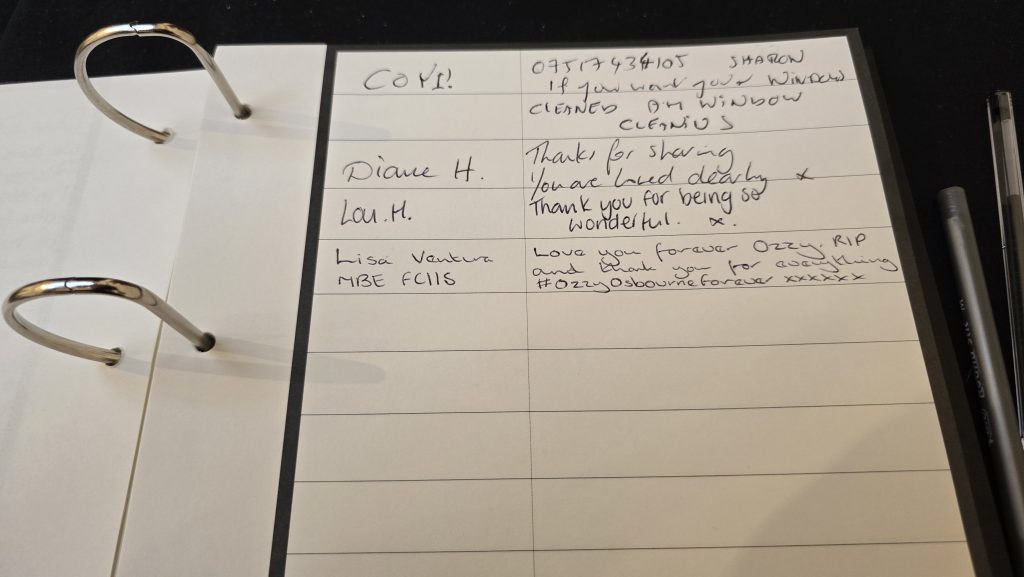 COYI!
07517434105 SHARON
If you want your WINDOW
CLEANED AM WINDOW
CLEANUS
Diane H.
Thanks for sharing
You are loved dearly x
Lou.H.
Thank you for being so
wonderful. x.
Lisa Ventura
MBE FCIIS
Love you forever Ozzy. RIP
and thank you for everything
#OzzyOsbourneforever xxxxxx